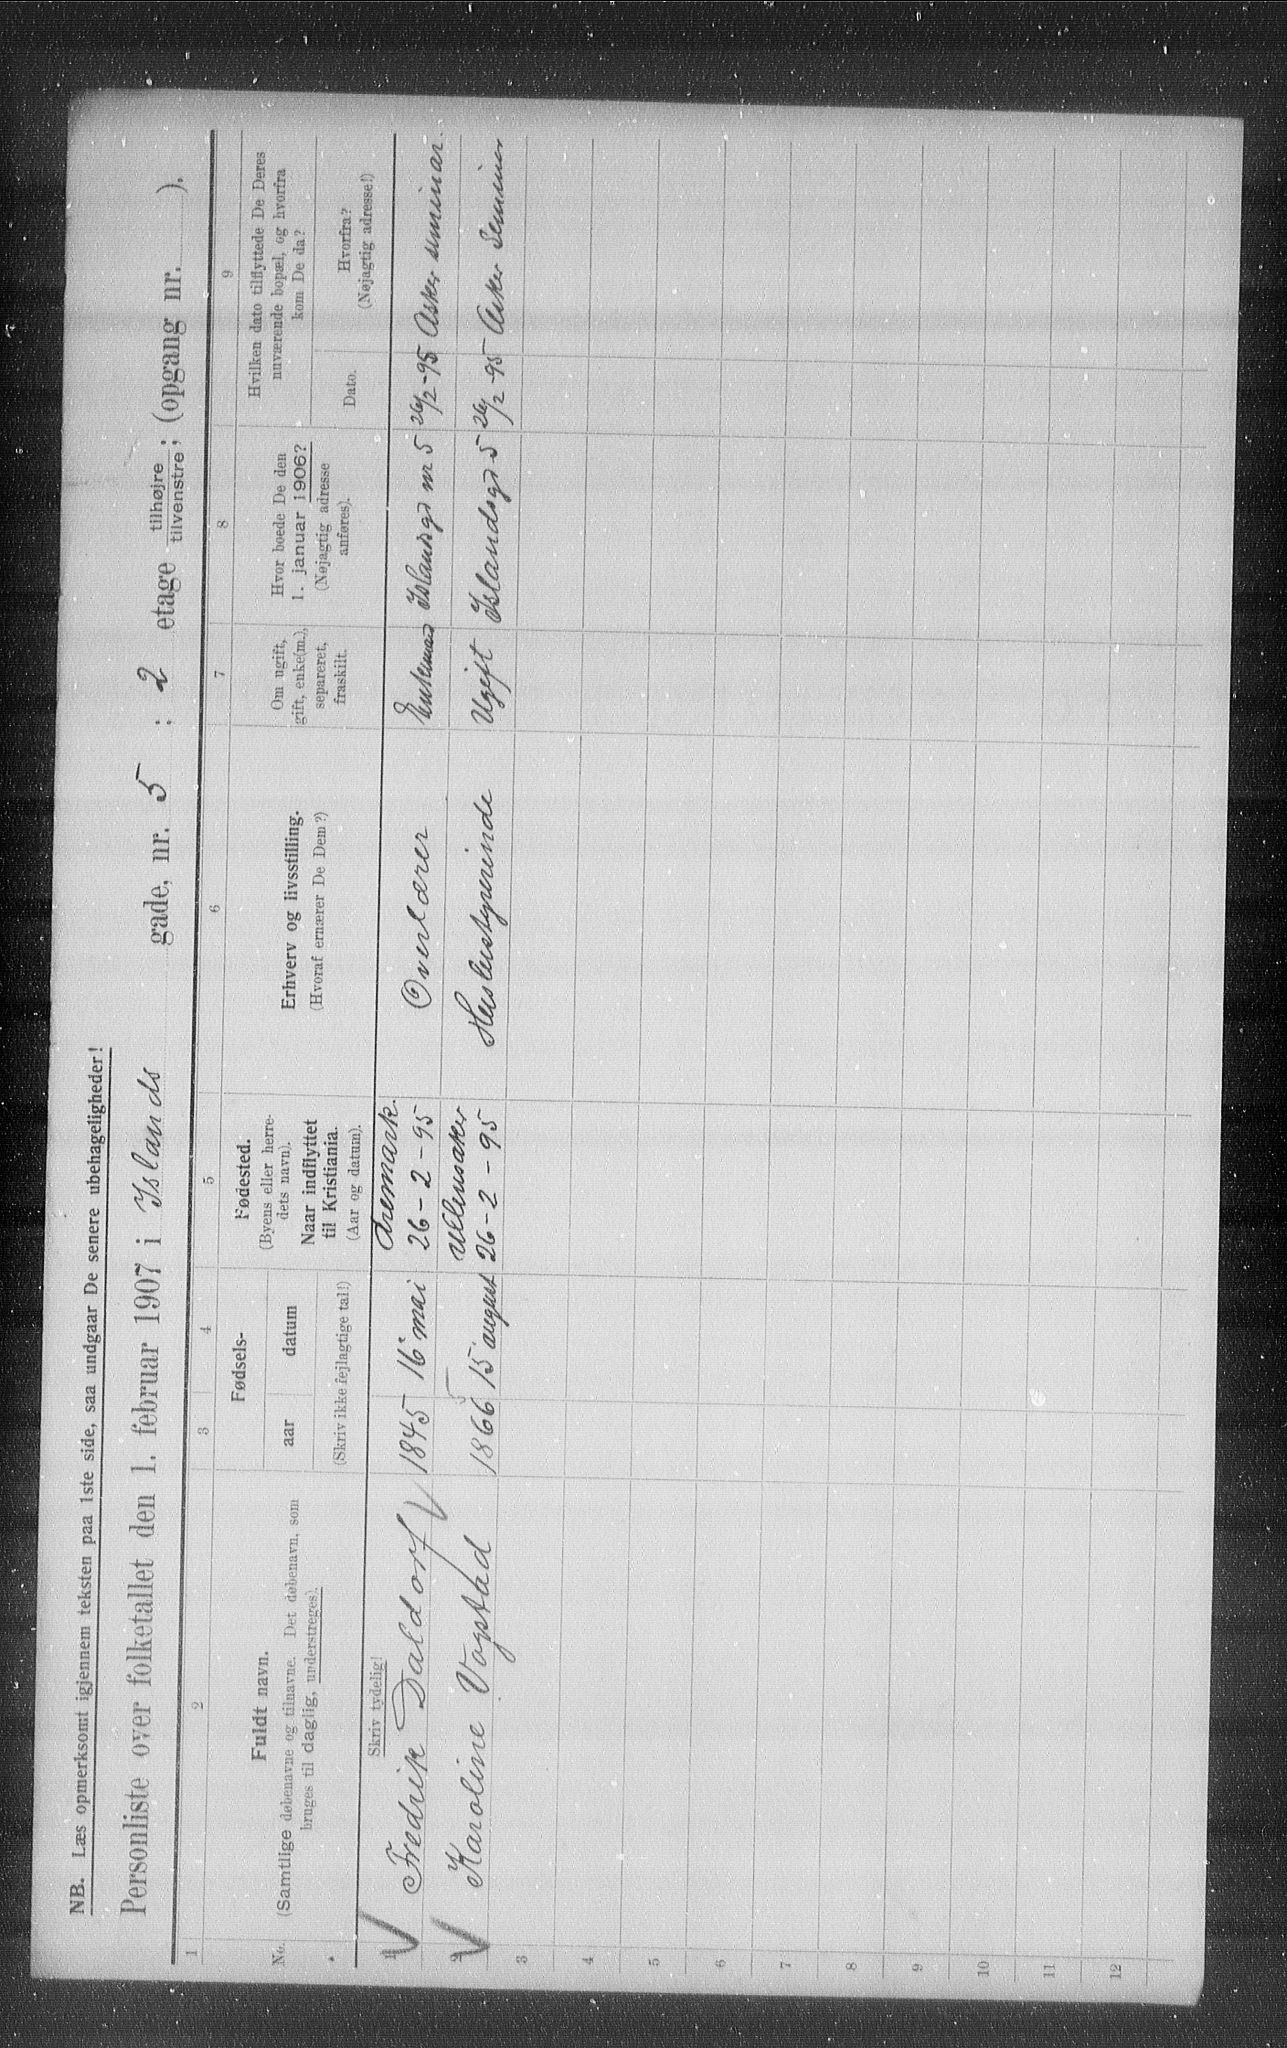 NB. Læs opmerksomt igjennem teksten paa 1ste side, saa undgaar De senere ubehageligheder!
Personliste over folketallet den 1. februar 1907 i Islands gade, nr. 5 ; 2 etage tilhøjre tilvenstre; (opgang nr. ).
1 2 3 4 5 6 7 8 9
No.
Fuldt navn.
(Samtlige døbenavne og tilnavne. Det døbenavn, som
bruges til daglig, understreges).
Skriv tydelig!
Fødsels-
aar datum
(Skriv ikke fejlagtige tal!)
Fødested.
(Byens eller herre-
dets navn).
Naar indflyttet
til Kristiania.
(Aar og datum).
Erhverv og livsstilling.
(Hvoraf ernærer De Dem?)
Om ugift,
gift, enke(m.),
separeret,
fraskilt.
Hvor boede De den
1. januar 1906?
(Nøjagtig adresse
anføres).
Hvilken dato tilflyttede De Deres
nuværende bopæl, og hvorfra
kom De da?
Dato.
Hvorfra?
(Nøjagtig adresse!)
1 Fredrik Daldorf 1845 16 mai Aremark. 26-2-95 Overlærer Enkemand Islandsgd nr 5 26/2-95 Asker seminar.
2 Karoline Vogstad 1866 15 august Ullensaker 26-2-95 Husbestyrerinde Ugift Islandsgd 5 26/2-95 Asker Seminar
3
4
5
6
7
8
9
10
11
12